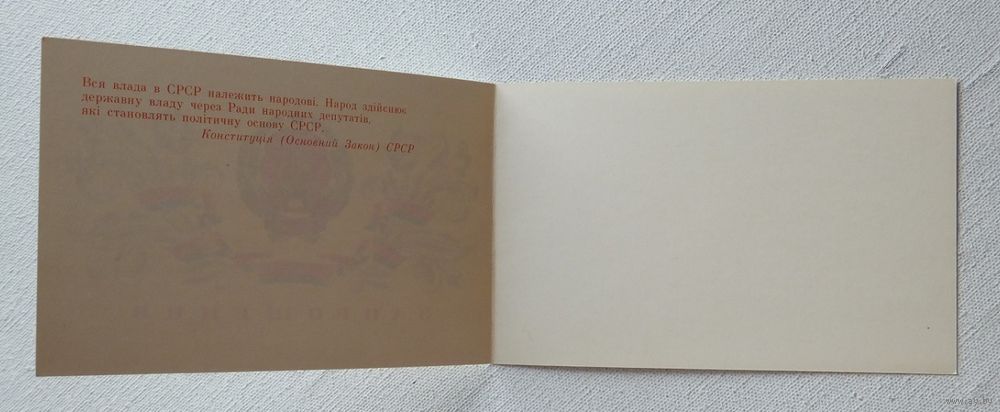 Вся влада в СРСР належить народові. Народ здійснює
державну владу через Ради народних депутатів,
які становлять політичну основу СРСР.
Конституція (Основний Закон) СРСР
www.ay.by